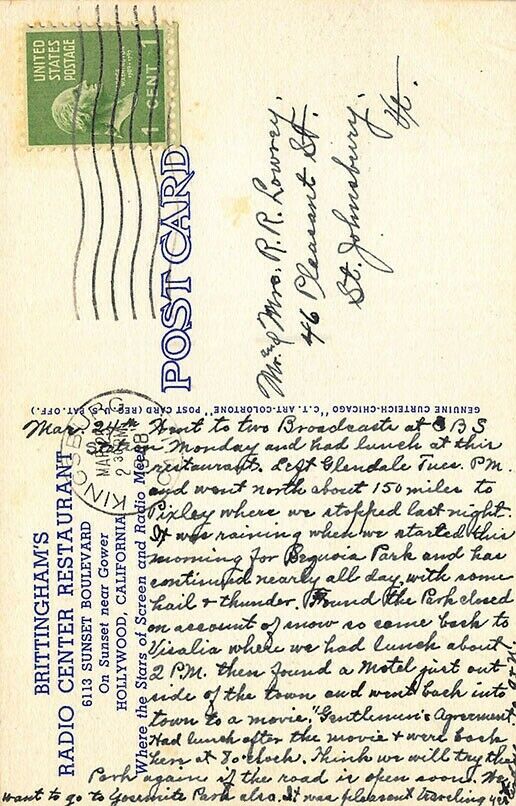 UNITED
STATES
POSTAGE
1 CENT 1
POST CARD
Mr. and Mrs. R. R. Lowrey.
46 Pleasant St.
St. Johnsbury.
Vt.
GENUINE CURTEICH-CHICAGO "C.T. ART-COLORTONE" POST CARD (REG. U.S. PAT. OFF.)
KINGSBURG
MAR 25
2 30 PM
BRITTINGHAM'S
RADIO CENTER RESTAURANT
6113 SUNSET BOULEVARD
On Sunset near Gower
HOLLYWOOD, CALIFORNIA
Where the Stars of Screen and Radio Meet
Mar. 24th Went to two Broadcasts at CBS
on Monday and had lunch at this
restaurant. Left Glendale Tues. P.M.
and went north about 150 miles to
Pixley where we stopped last night.
It was raining when we started this
morning for Sequoia Park and has
continued nearly all day, with some
hail & thunder. Found the Park closed
on account of snow so came back to
Visalia where we had lunch about
2 P.M. then found a Motel just out
side of the town and went back into
town to a movie, "Gentlemen's Agreement.
Had lunch after the movie & were back
here at 8 o'clock. Think we will try the
Park again if the road is open soon. We
want to go to Yosemite Park also. It was pleasant traveling yes